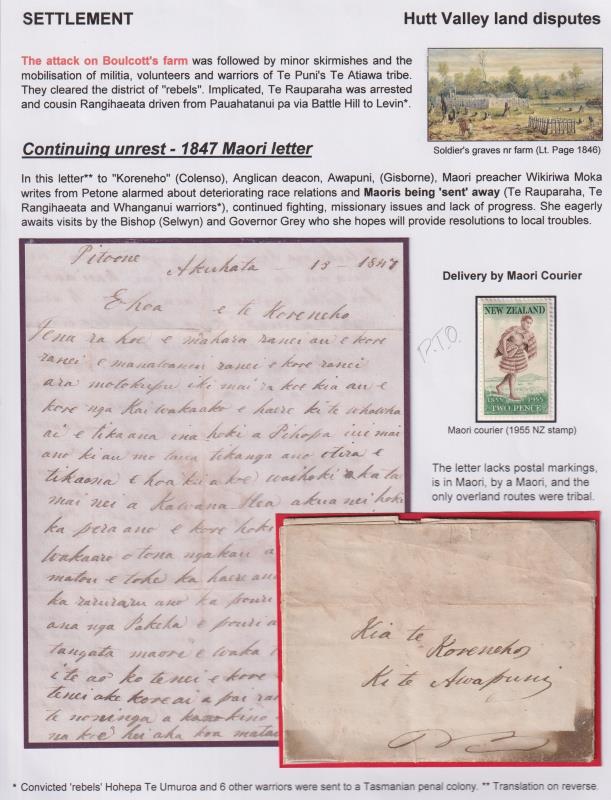 SETTLEMENT
Hutt Valley land disputes
The attack on Boulcott's farm was followed by minor skirmishes and the
mobilisation of militia, volunteers and warriors of Te Puni's Te Atiawa tribe.
They cleared the district of "rebels". Implicated, Te Rauparaha was arrested
and cousin Rangihaeata driven from Pauahatanui pa via Battle Hill to Levin*.
Soldier's graves nr farm (Lt. Page 1846)
Continuing unrest - 1847 Maori letter
In this letter** to "Koreneho" (Colenso), Anglican deacon, Awapuni, (Gisborne), Maori preacher Wikiriwa Moka
writes from Petone alarmed about deteriorating race relations and Maoris being 'sent' away (Te Rauparaha, Te
Rangihaeata and Whanganui warriors*), continued fighting, missionary issues and lack of progress. She eagerly
awaits visits by the Bishop (Selwyn) and Governor Grey who she hopes will provide resolutions to local troubles.
Pitoone
Akuhata - 13 - 1847
E hoa e te Koreneho
Tena ra koe e mahara ranei au e kore
ranei e manawanui ranei e kore ranei
ara motokupu i ki mai ra koe kia au e
kore nga Kai wakaako e haere ki te
ai e tikaana ina hoki a Pihopa
ano ki au mo tana tikanga ano otira e
tikaona e hoa ki a koe waihoki
mai nei a Kawana
ka pera ano e kore hoki
wakaaro o tona ngakau a
matou e tohe ka haere ano
ka raruraru ano ka pouri
ana nga Pakeha e pouri a
tangata maori e waka
i te ao ko tenei e kore
tenei ake kore ai a pai
te noninga a kino
na koe hei aha koa
Delivery by Maori Courier
P.T.O.
NEW ZEALAND
1855 1955
TWO PENCE
Maori courier (1955 NZ stamp)
The letter lacks postal markings,
is in Maori, by a Maori, and the
only overland routes were tribal.
Kia te
Koreneho
Ki te Awapuni
* Convicted 'rebels' Hohepa Te Umuroa and 6 other warriors were sent to a Tasmanian penal colony. ** Translation on reverse.